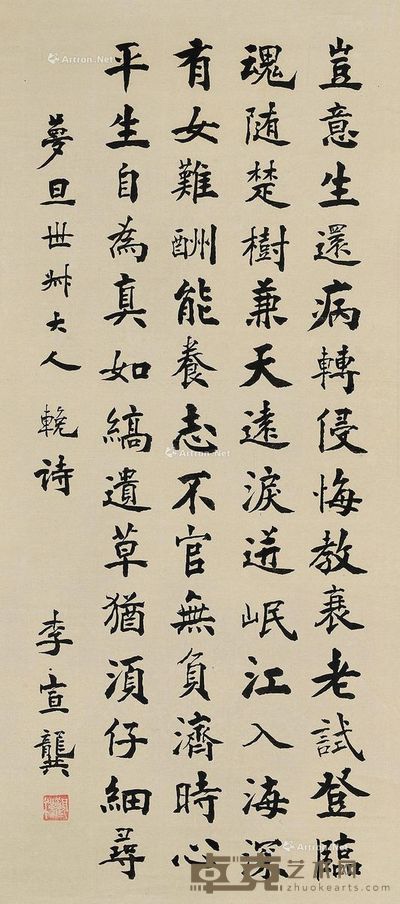 豈意生還病轉侵悔教衰老試登臨
魂随楚樹兼天遠淚迸岷江入海深
有女難酬能養志不官無負濟時心
平生自為真如縞遺草猶須仔細尋
夢旦世丈大人輓诗
李宣龔
Artron.Net
Artron.Net
Artron.Net
卓克艺术网
zhuokearts.com